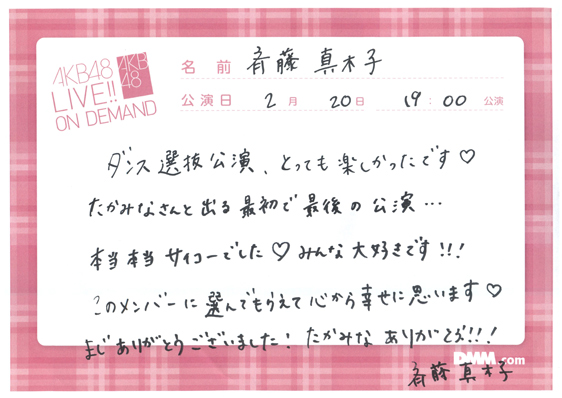 AKB48
LIVE!!
ON DEMAND
AKB
48
名前 斉藤真木子
公演日 2月 20日 19:00 公演
ダンス選抜公演、とっても楽しかったです♡
たかみなさんと出る最初で最後の公演…
本当本当サイコーでした♡みんな大好きです!!!
このメンバーに選んでもらえて心から幸せに思います♡
まじありがとうございました! たかみなありがとう!!!
DMM.com
斉藤真木子